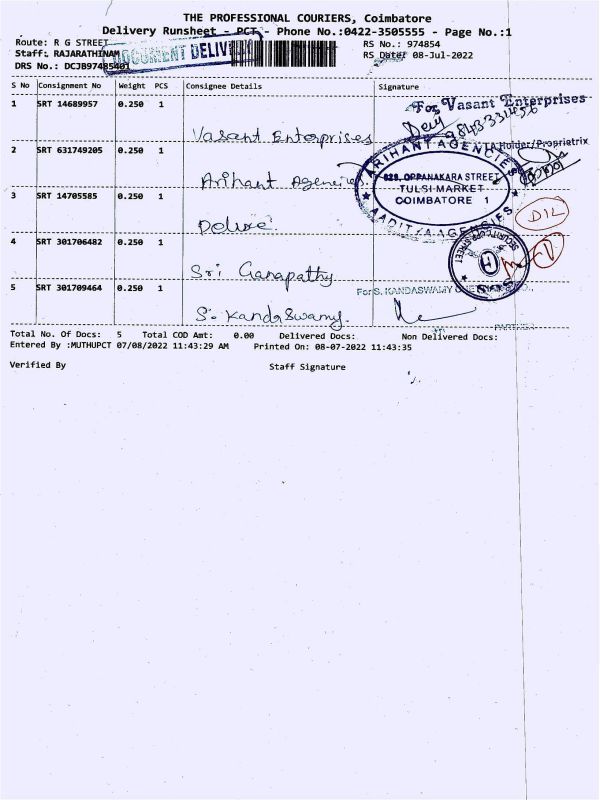 THE PROFESSIONAL COURIERS, Coimbatore
Delivery Runsheet - PCT - Phone No.:0422-3505555 - Page No.:1
Route: R G STREET
RS No.: 974854
Staff: RAJARATHINAM
DOCUMENT DELIV
RS Date: 08-Jul-2022
DRS No.: DCJB97485401
S No Consignment No Weight PCS Consignee Details Signature
1 SRT 14689957 0.250 1
For Vasant Enterprises
Vasant Enterprises
2 SRT 631749205 0.250 1
Holder/Proprietrix
ARIHANT AGENCIES
829, OPPANAKARA STREET
TULSI MARKET
COIMBATORE 1
AADITYA AGENCIES
Arihant Agencies
3 SRT 14705585 0.250 1
Deluxe
4 SRT 301706482 0.250 1
Sri Ganapathy
5 SRT 301709464 0.250 1
For S. KANDASWAMY
S. Kandaswamy
Total No. Of Docs: 5 Total COD Amt: 0.00 Delivered Docs: Non Delivered Docs:
Entered By :MUTHUPCT 07/08/2022 11:43:29 AM Printed On: 08-07-2022 11:43:35
Verified By Staff Signature